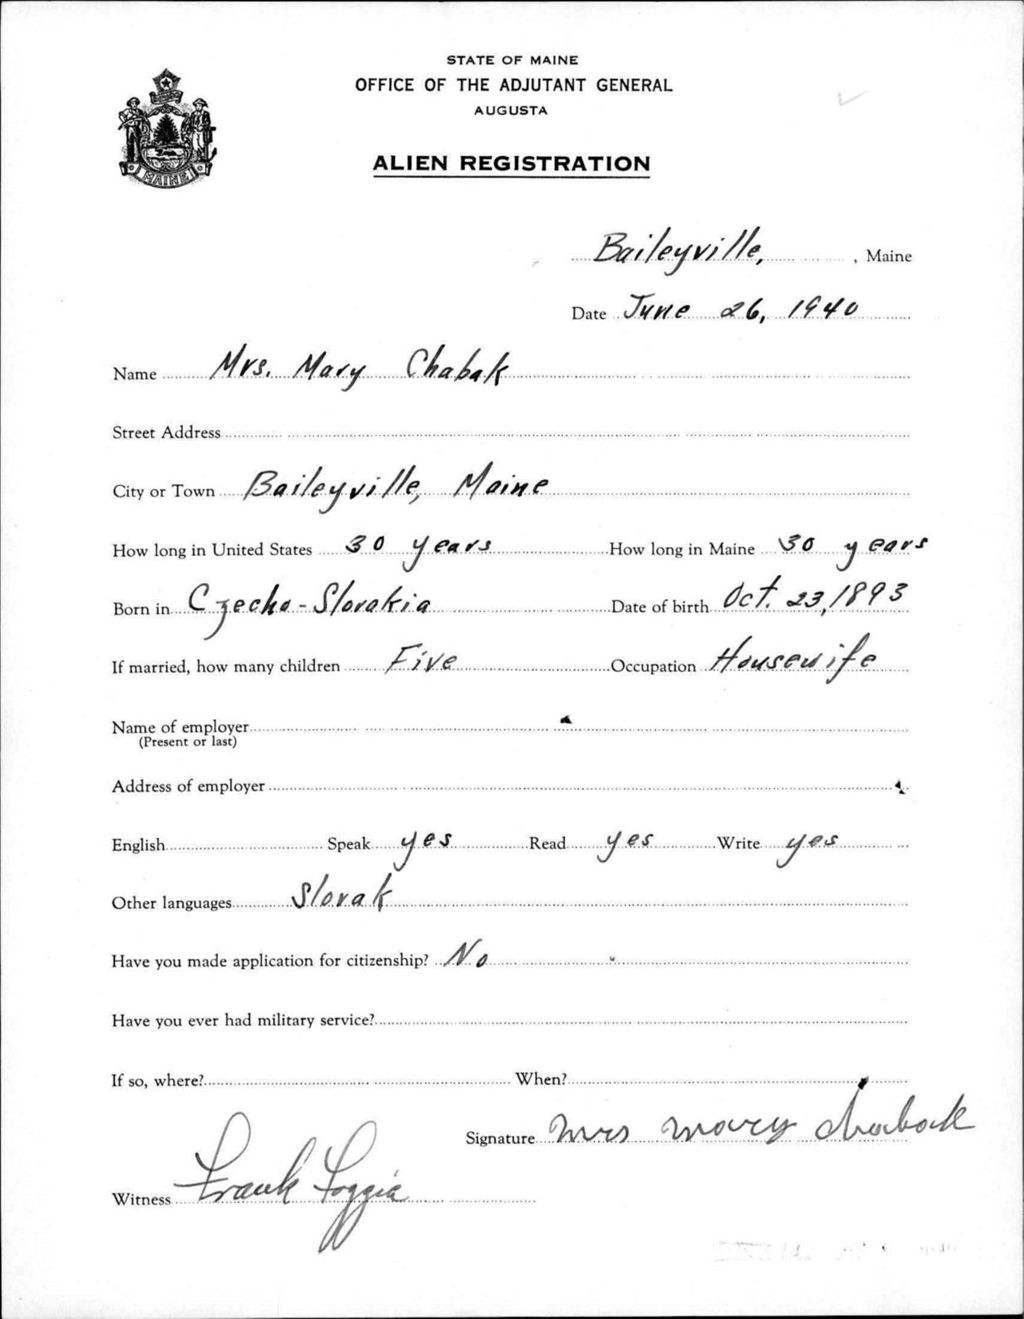 STATE OF MAINE
OFFICE OF THE ADJUTANT GENERAL
AUGUSTA
ALIEN REGISTRATION
MAINE
Baileyville, , Maine
Date June 26, 1940
Name Mrs. Mary Chabak
Street Address
City or Town Baileyville, Maine
How long in United States 30 years How long in Maine 30 years
Born in Czecho-Slovakia Date of birth Oct. 23, 1893
If married, how many children Five Occupation Housewife
Name of employer
(Present or last)
Address of employer
English Speak yes Read yes Write yes
Other languages Slovak
Have you made application for citizenship? No
Have you ever had military service?
If so, where? When?
Signature Mrs Mary Chabak
Witness Frank Foggia